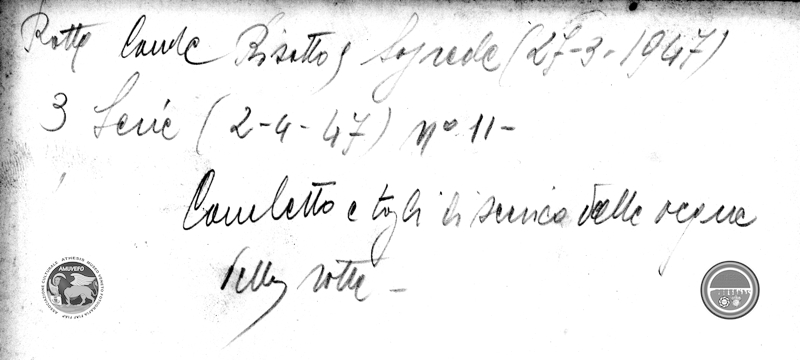 Rotta Canale Risotto e Sagrede (27-3-1947)
3 Serie (2-4-47) nº 11-
e togli di scarico delle acque
della rotta -
AMUVEFO